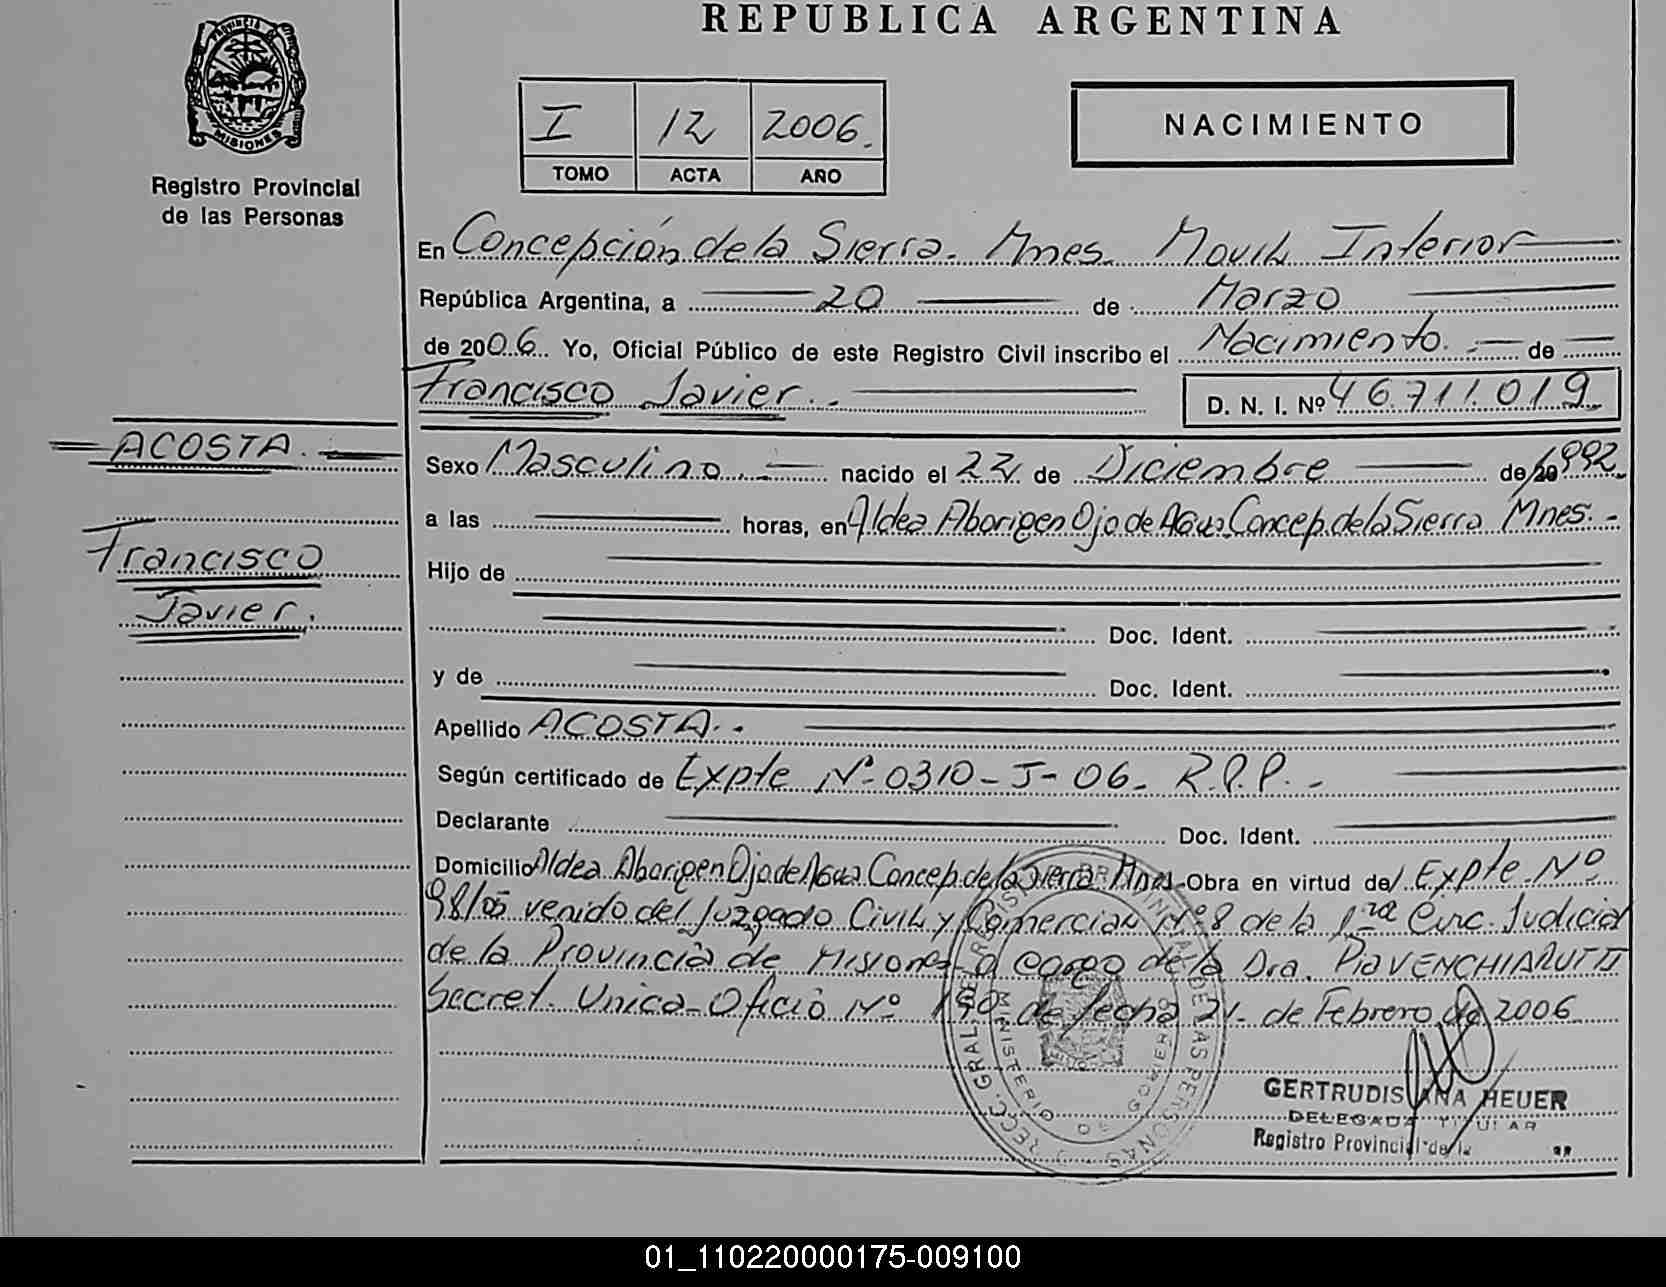 REPUBLICA ARGENTINA
PROVINCIA DE
MISIONES
Registro Provincial
de las Personas
I 12 2006.
TOMO ACTA AÑO
NACIMIENTO
En Concepción de la Sierra. Mnes. Movil Interior
República Argentina, a 20 de Marzo
de 2006. Yo, Oficial Público de este Registro Civil inscribo el Nacimiento. de
Francisco Javier. D. N. I. Nº 46.711.019
ACOSTA.
Francisco
Javier.
Sexo Masculino nacido el 22 de Diciembre de 1992
a las horas, en Aldea Aborigen Ojo de Agua Concep. de la Sierra Mnes.
Hijo de
Doc. Ident.
y de Doc. Ident.
Apellido ACOSTA.
Según certificado de Expte Nº 0310-J-06. R.P.P.
Declarante Doc. Ident.
Domicilio Aldea Aborigen Ojo de Agua Concep. de la Sierra Mnes. Obra en virtud del Expte. Nº
98/05 venido del Juzgado Civil y Comercial Nº 8 de la 1ra Circ. Judicial
de la Provincia de Misiones a cargo de la Dra.
Secret. Unica Oficio Nº de fecha 21 de Febrero de 2006
GERTRUDIS ANA HEUER
DELEGADA TITULAR
Registro Provincial de la
MINISTERIO DE GOBIERNO
01_110220000175-009100